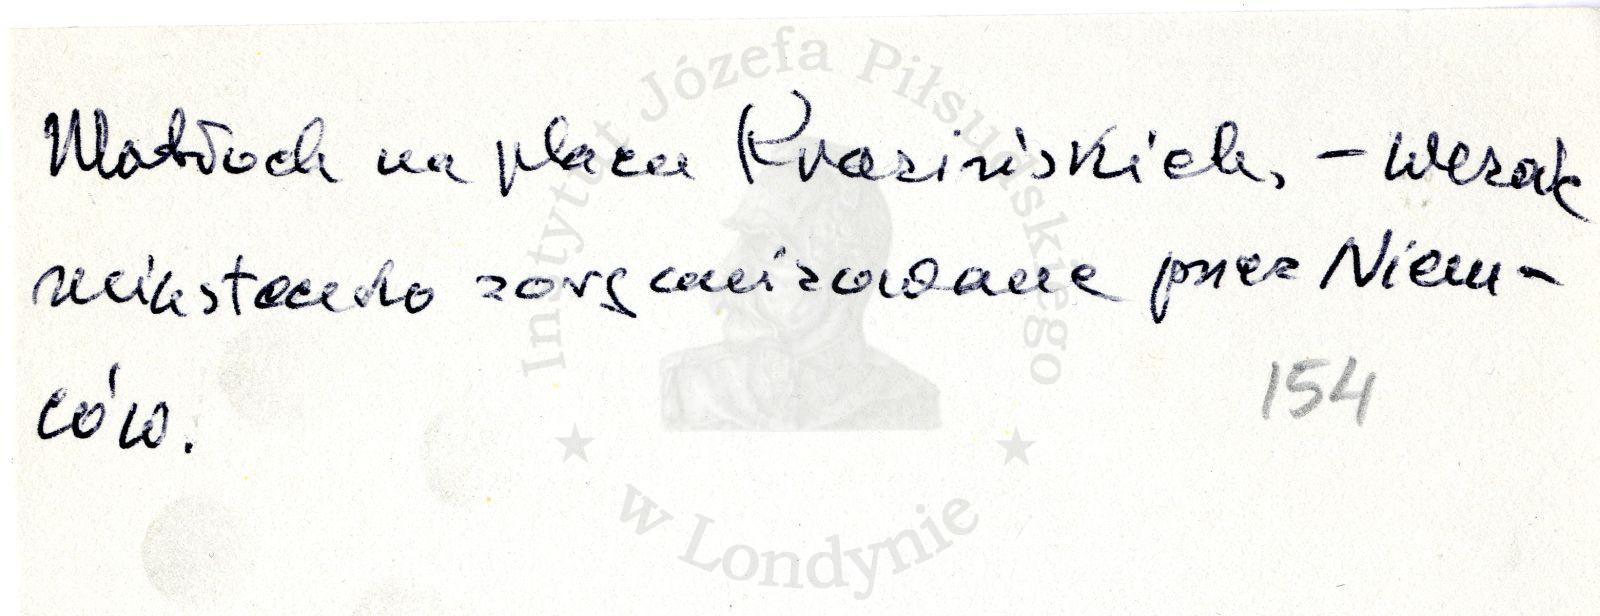 Motłoch na placu Krasińskich, – Wesołe
miasteczko zorganizowane przez Niem-
ców.
154
Instytut Józefa Piłsudskiego
w Londynie